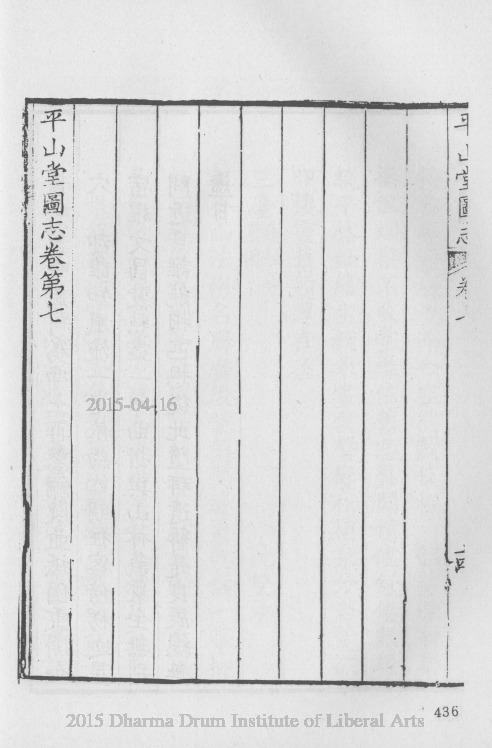 平山堂圖志 卷
平山堂圖志卷第七
2015-04-16
436
2015 Dharma Drum Institute of Liberal Arts